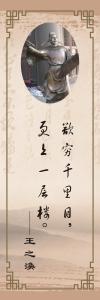 欲穷千里目，
更上一层楼。
——王之涣